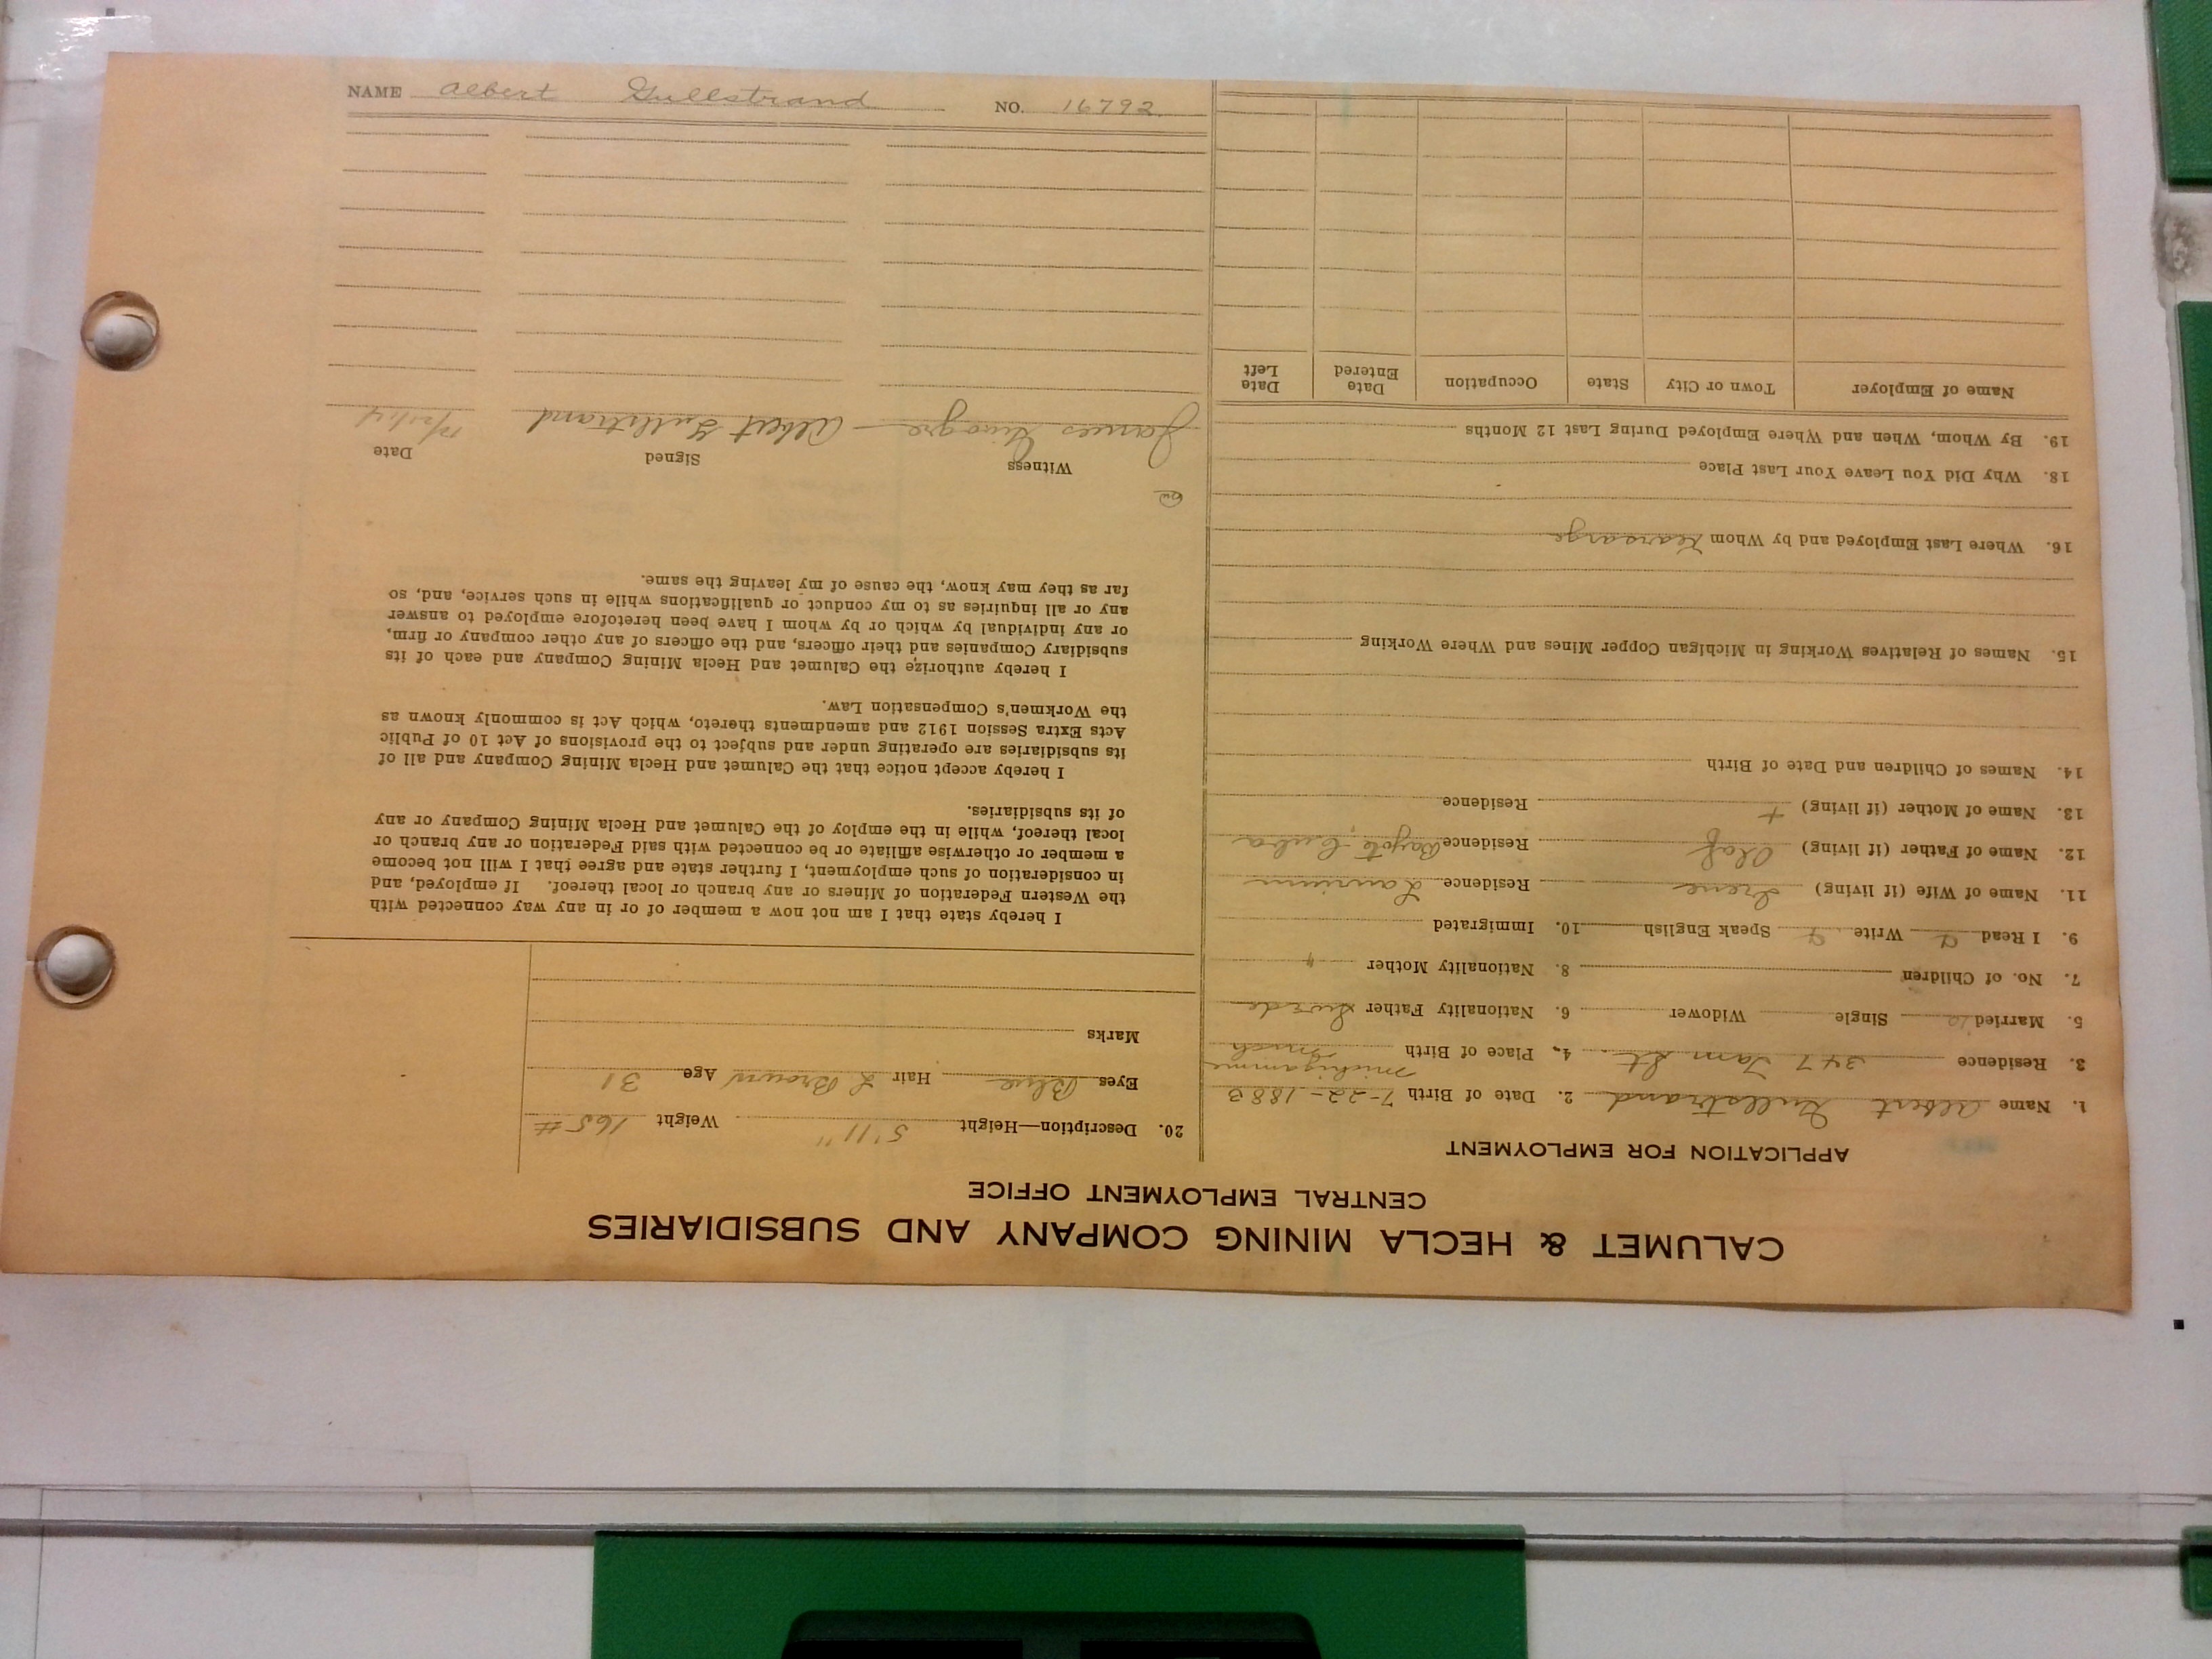 CALUMET & HECLA MINING COMPANY AND SUBSIDIARIES
CENTRAL EMPLOYMENT OFFICE
APPLICATION FOR EMPLOYMENT
1. Name Albert Gullstrand 2. Date of Birth 7-22-1883
3. Residence 347 Tam St. 4. Place of Birth Michigamme Mich
5. Married Single Widower 6. Nationality Father Swede
7. No. of Children 8. Nationality Mother "
9. I Read Write Speak English 10. Immigrated
11. Name of Wife (if living) Irene Residence Laurium
12. Name of Father (if living) Olof Residence Cuba
13. Name of Mother (if living) + Residence
14. Names of Children and Date of Birth
15. Names of Relatives Working in Michigan Copper Mines and Where Working
16. Where Last Employed and by Whom Kearsarge
18. Why Did You Leave Your Last Place
19. By Whom, When and Where Employed During Last 12 Months
Name of Employer Town or City State Occupation Date Entered Date Left
20. Description—Height 5'11" Weight 165#
Eyes Blue Hair L Brown Age 31
Marks
I hereby state that I am not now a member of or in any way connected with
the Western Federation of Miners or any branch or local thereof. If employed, and
in consideration of such employment, I further state and agree that I will not become
a member or otherwise affiliate or be connected with said Federation or any branch or
local thereof, while in the employ of the Calumet and Hecla Mining Company or any
of its subsidiaries.
I hereby accept notice that the Calumet and Hecla Mining Company and all of
its subsidiaries are operating under and subject to the provisions of Act 10 of Public
Acts Extra Session 1912 and amendments thereto, which Act is commonly known as
the Workmen's Compensation Law.
I hereby authorize the Calumet and Hecla Mining Company and each of its
subsidiary Companies and their officers, and the officers of any other company or firm,
or any individual by which or by whom I have been heretofore employed to answer
any or all inquiries as to my conduct or qualifications while in such service, and, so
far as they may know, the cause of my leaving the same.
Witness Signed Date
James Albert Gullstrand
NAME Albert Gullstrand NO. 16792